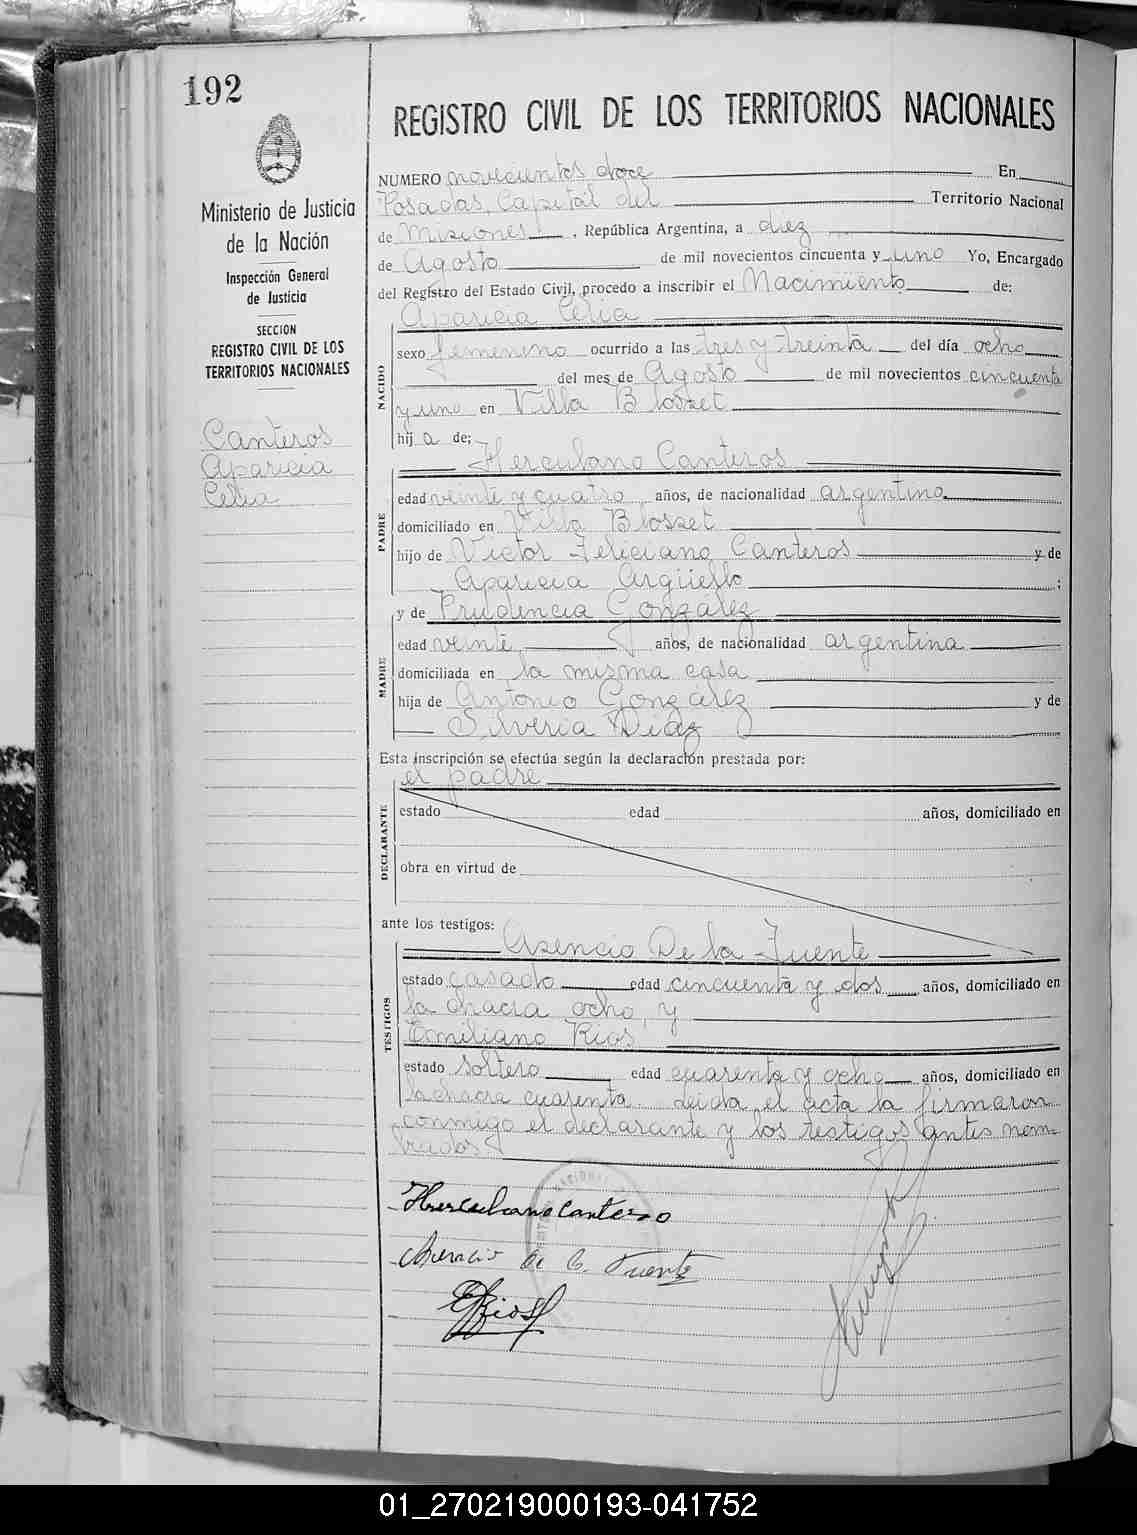 192
REGISTRO CIVIL DE LOS TERRITORIOS NACIONALES
Ministerio de Justicia
de la Nación
Inspección General
de Justicia
SECCION
REGISTRO CIVIL DE LOS
TERRITORIOS NACIONALES
Canteros
Aparicia
Celia
NUMERO novecientos doce En
Posadas, Capital del Territorio Nacional
de Misiones, República Argentina, a diez
de Agosto de mil novecientos cincuenta y uno Yo, Encargado
del Registro del Estado Civil, procedo a inscribir el Nacimiento de:
Aparicia Celia
NACIDO
sexo femenino ocurrido a las tres y treinta del día ocho
del mes de Agosto de mil novecientos cincuenta
y uno en Villa Blosset
hija de:
Herculano Canteros
PADRE
edad veinte y cuatro años, de nacionalidad argentino
domiciliado en Villa Blosset
hijo de Victor Feliciano Canteros y de
Aparicia Argüello ;
y de Prudencia González
MADRE
edad veinte años, de nacionalidad argentina
domiciliada en la misma casa
hija de Antonio González y de
Silveria Diaz
Esta inscripción se efectúa según la declaración prestada por:
el padre
DECLARANTE
estado edad años, domiciliado en
obra en virtud de
ante los testigos:
Asencio De la Fuente
TESTIGOS
estado casado edad cincuenta y dos años, domiciliado en
la chacra ocho, y
Emiliano Rios
estado soltero edad cuarenta y ocho años, domiciliado en
la chacra cuarenta. Leida el acta la firmaron
conmigo el declarante y los testigos antes nom-
brados
Herculano Cantero
Asencio de la Fuente
ERios
01_270219000193-041752